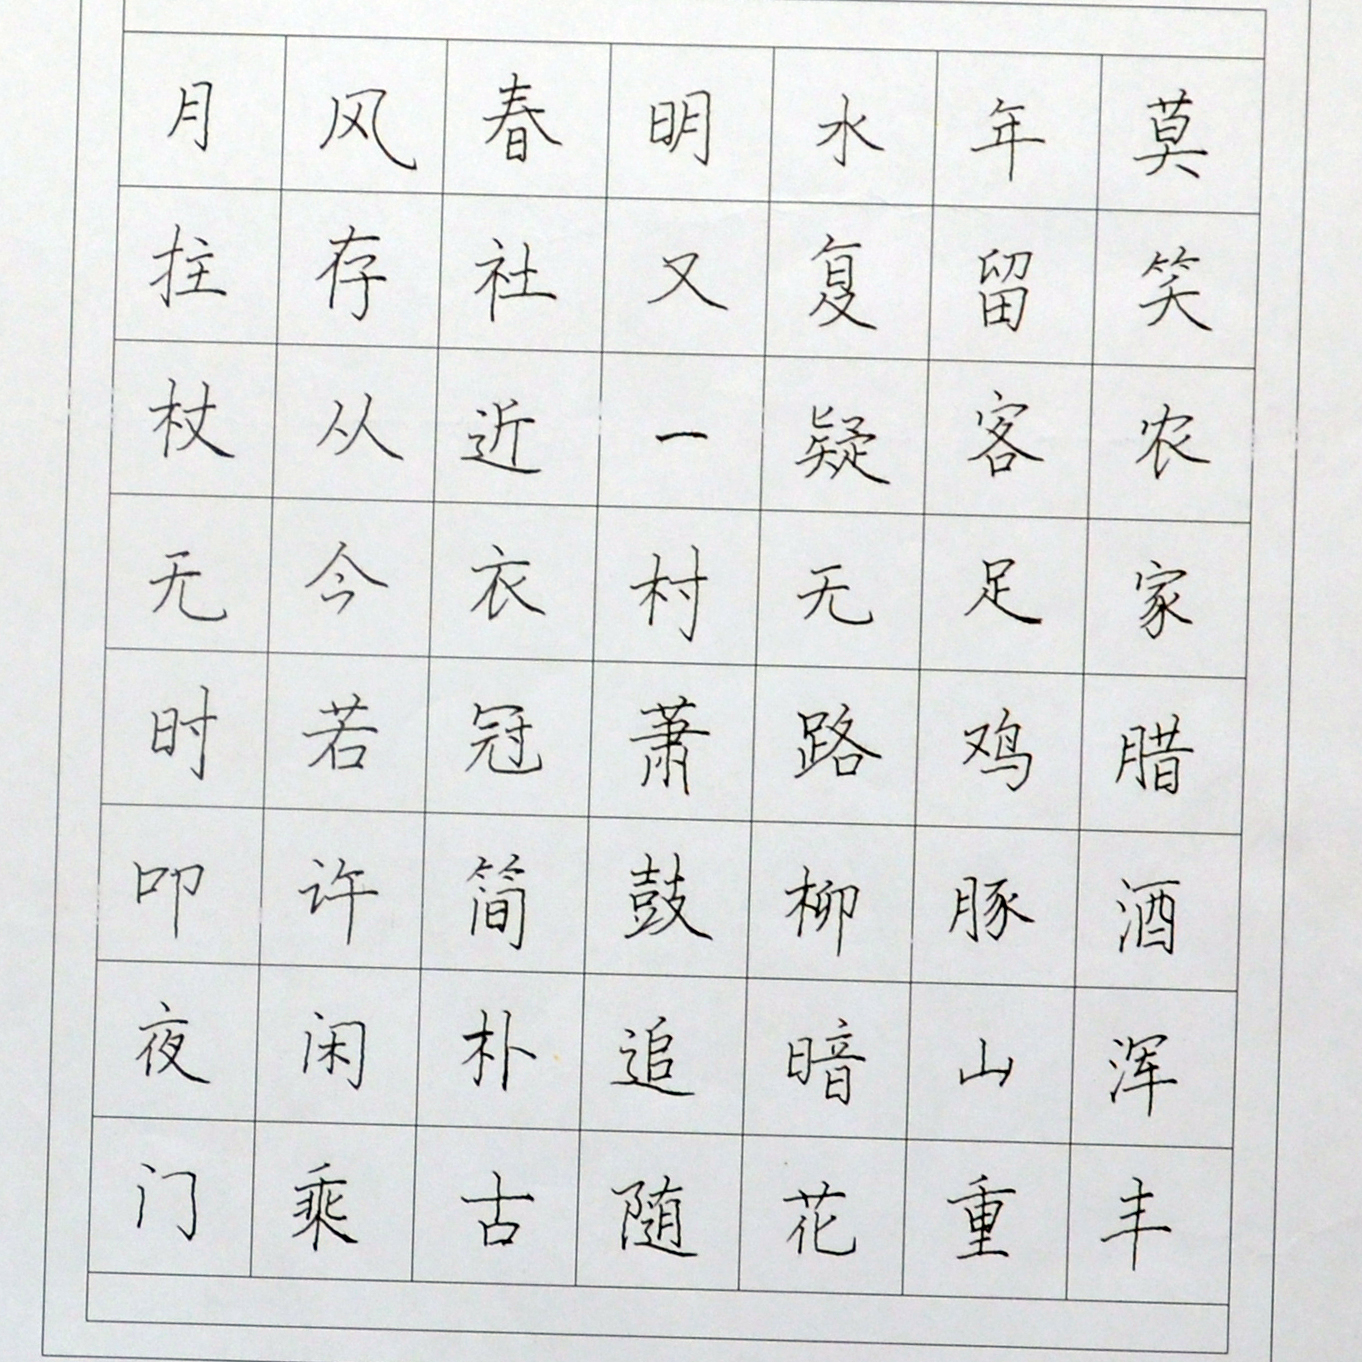 莫笑农家腊酒浑丰
年留客足鸡豚山重
水复疑无路柳暗花
明又一村萧鼓追随
春社近衣冠简朴古
风存从今若许闲乘
月拄杖无时叩夜门